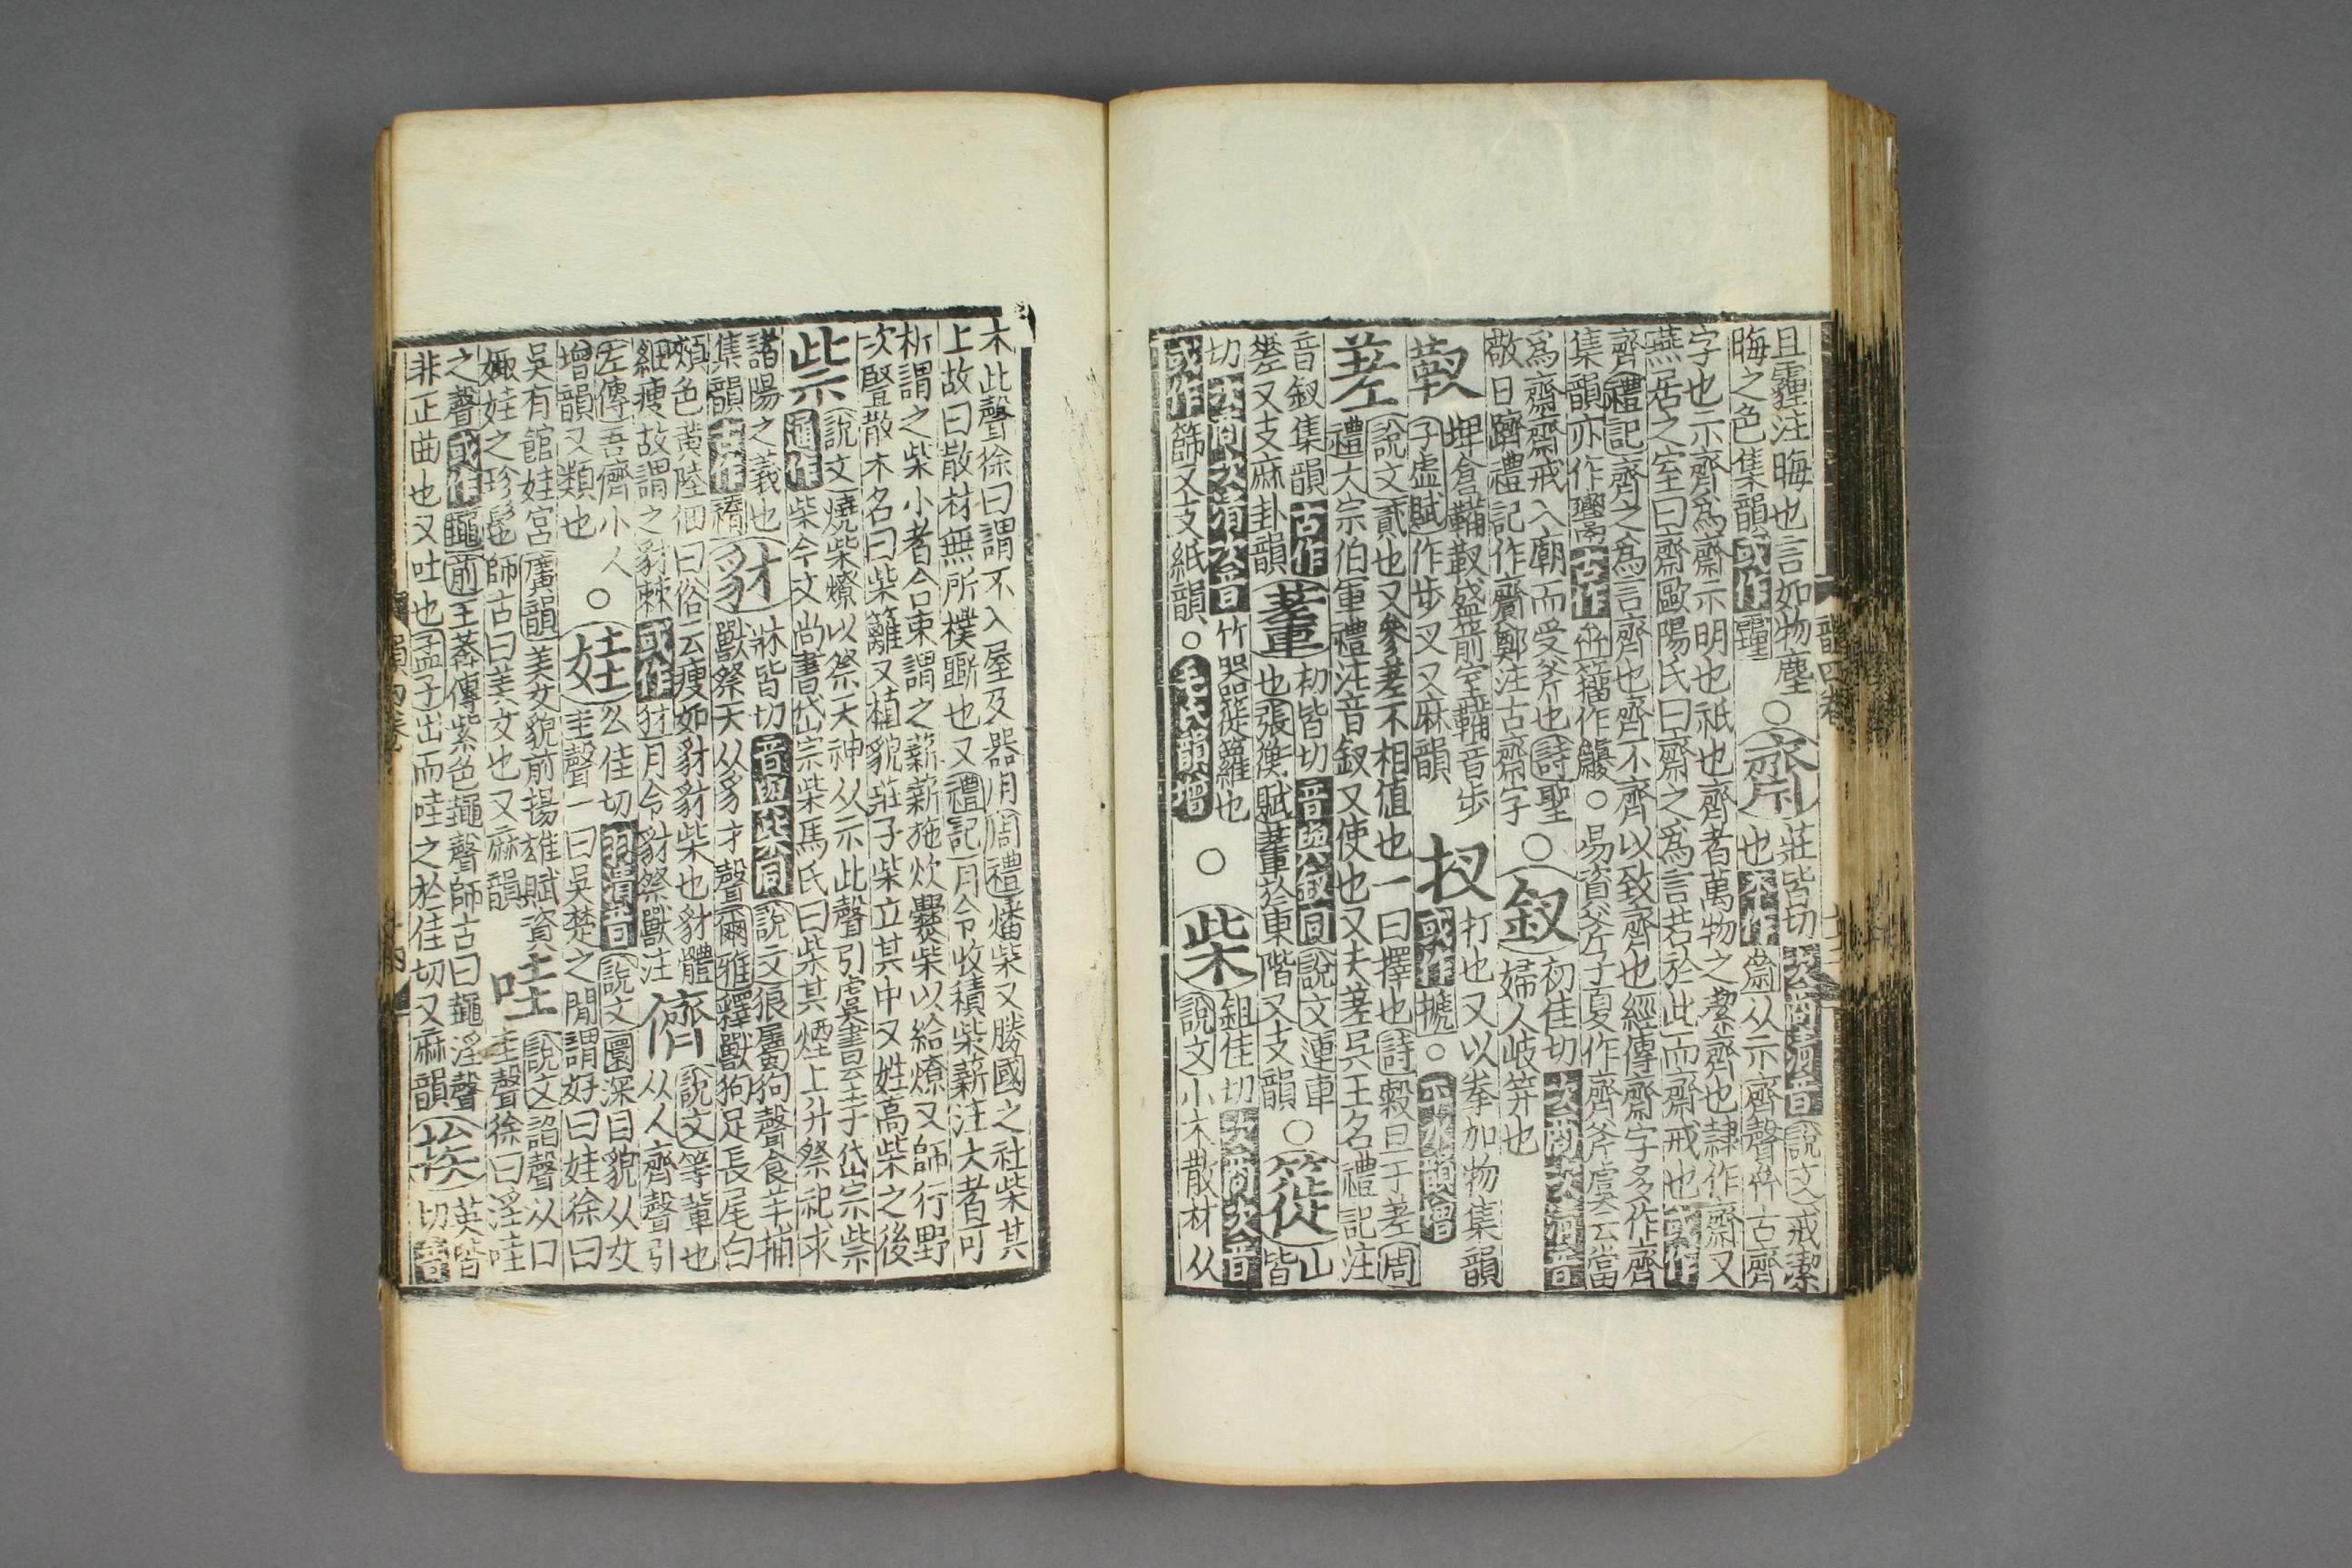 且霾注晦也言如物塵○齋莊皆切次商清音說文戒潔
晦之色集韻或作 也本作齋从示齊聲亝古齊
字也示齊爲齋示明也祇也齊者萬物之潔齊也隷作齋又
燕居之室曰齋歐陽氏曰齋之爲言若於此而齋戒也或作
齊禮記齊之爲言齊也齊不齊以致齊也經傳齋字多作齊
集韻亦作 古作 籀作 ○易資斧子夏作齊斧虞喜云當
爲齋齋戒入廟而受斧也詩聖○釵初佳切次商次清音
敬日躋禮記作齊鄭注古齋字 婦人岐笄也
靫埤倉鞴靫盛箭室鞴音步 扠打也又以拳加物集韻
子虛賦作步叉又麻韻 或作搋○ 韻增
差說文貳也又參差不相值也一曰擇也詩穀旦于差周
禮大宗伯軍禮注音釵又使也又夫差吳王名禮記注
音釵集韻古作 初皆切音與釵同說文連車
又支麻卦韻 也張衡賦 於東階又支韻○簁山皆
切次商次清次音 竹器簁籮也 ○柴鉏佳切次商次音
或作篩又支紙韻○毛氏韻增 說文小木散材从
木此聲徐曰謂不入屋及器用周禮燔柴又勝國之社柴其
上故曰散材無所樸斲也又禮記月令收積柴薪注大者可
析謂之柴小者合束謂之薪薪施炊爨柴以給燎又師行野
次豎散木名曰柴籬又槙貌莊子柴立其中又姓高柴之後
祡說文燒柴燎以祭天神从示此聲引虞書至于岱宗祡
通作柴今文尚書岱宗柴馬氏曰柴其煙上升祭祀求
諸陽之義也 豺牀皆切音與柴同說文狼屬狗聲食羊捕
集韻古作 獸祭天从豸才聲爾雅釋獸狗足長尾白
頰色黃陸佃曰俗云瘦如豺豺柴也豺體 儕說文等輩也
細瘦故謂之豺棘或作犲月令豺祭獸注 从人齊聲引
左傳吾儕小人 ○娃幺佳切羽清音說文圜深目貌从女
增韻又類也 圭聲一曰吳楚之閒謂好曰娃徐曰
吳有館娃宮廣韻美女貌前揚雄賦資 哇說文諂聲从口
娵娃之珍髢師古曰美女也又麻韻 圭聲徐曰淫哇
之聲或作䵷前王莽傳紫色䵷聲師古曰䵷淫聲 挨英皆
非正曲也又吐也孟子出而哇之於佳切又麻韻 切音